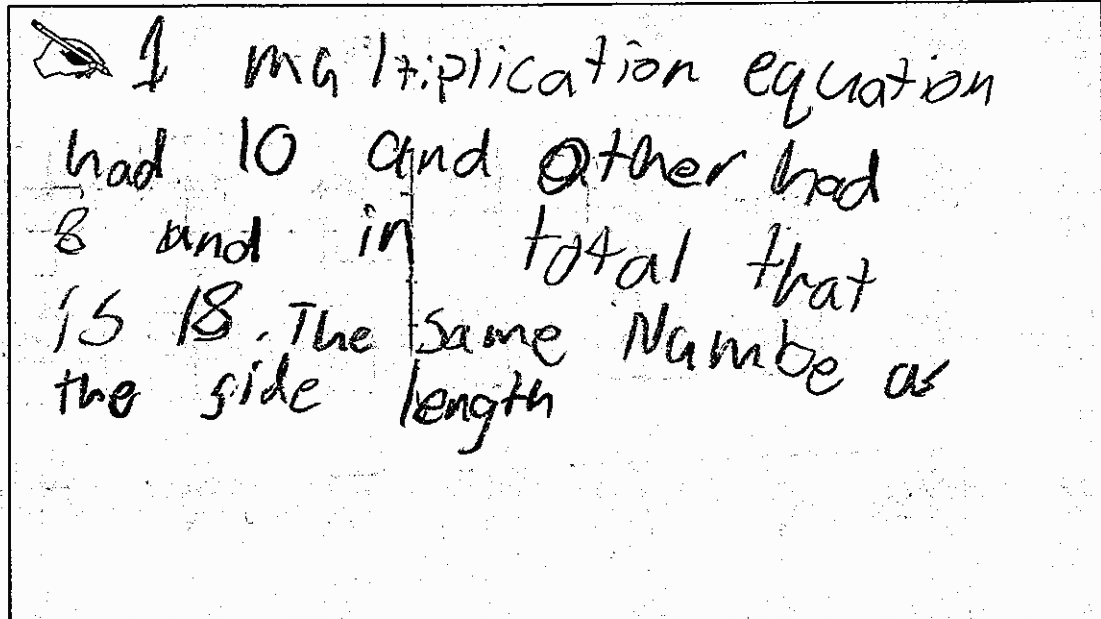 1 multiplication equation
had 10 and other had
8 and in total that
is 18. The same Numbe as
the side length